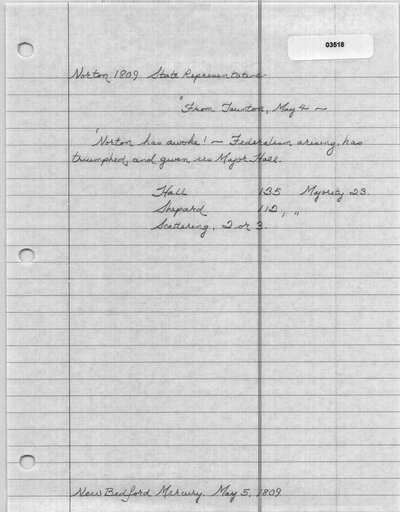 03518
Norton 1809 State Representative
"From Taunton, May 4 ~
'Norton has awoke! — Federalism arising, has
triumphed, and given us Major Hall.
Hall 135 Majority 23.
Shepard 112, "
Scattering, 2 or 3.
New Bedford Mercury. May 5, 1809